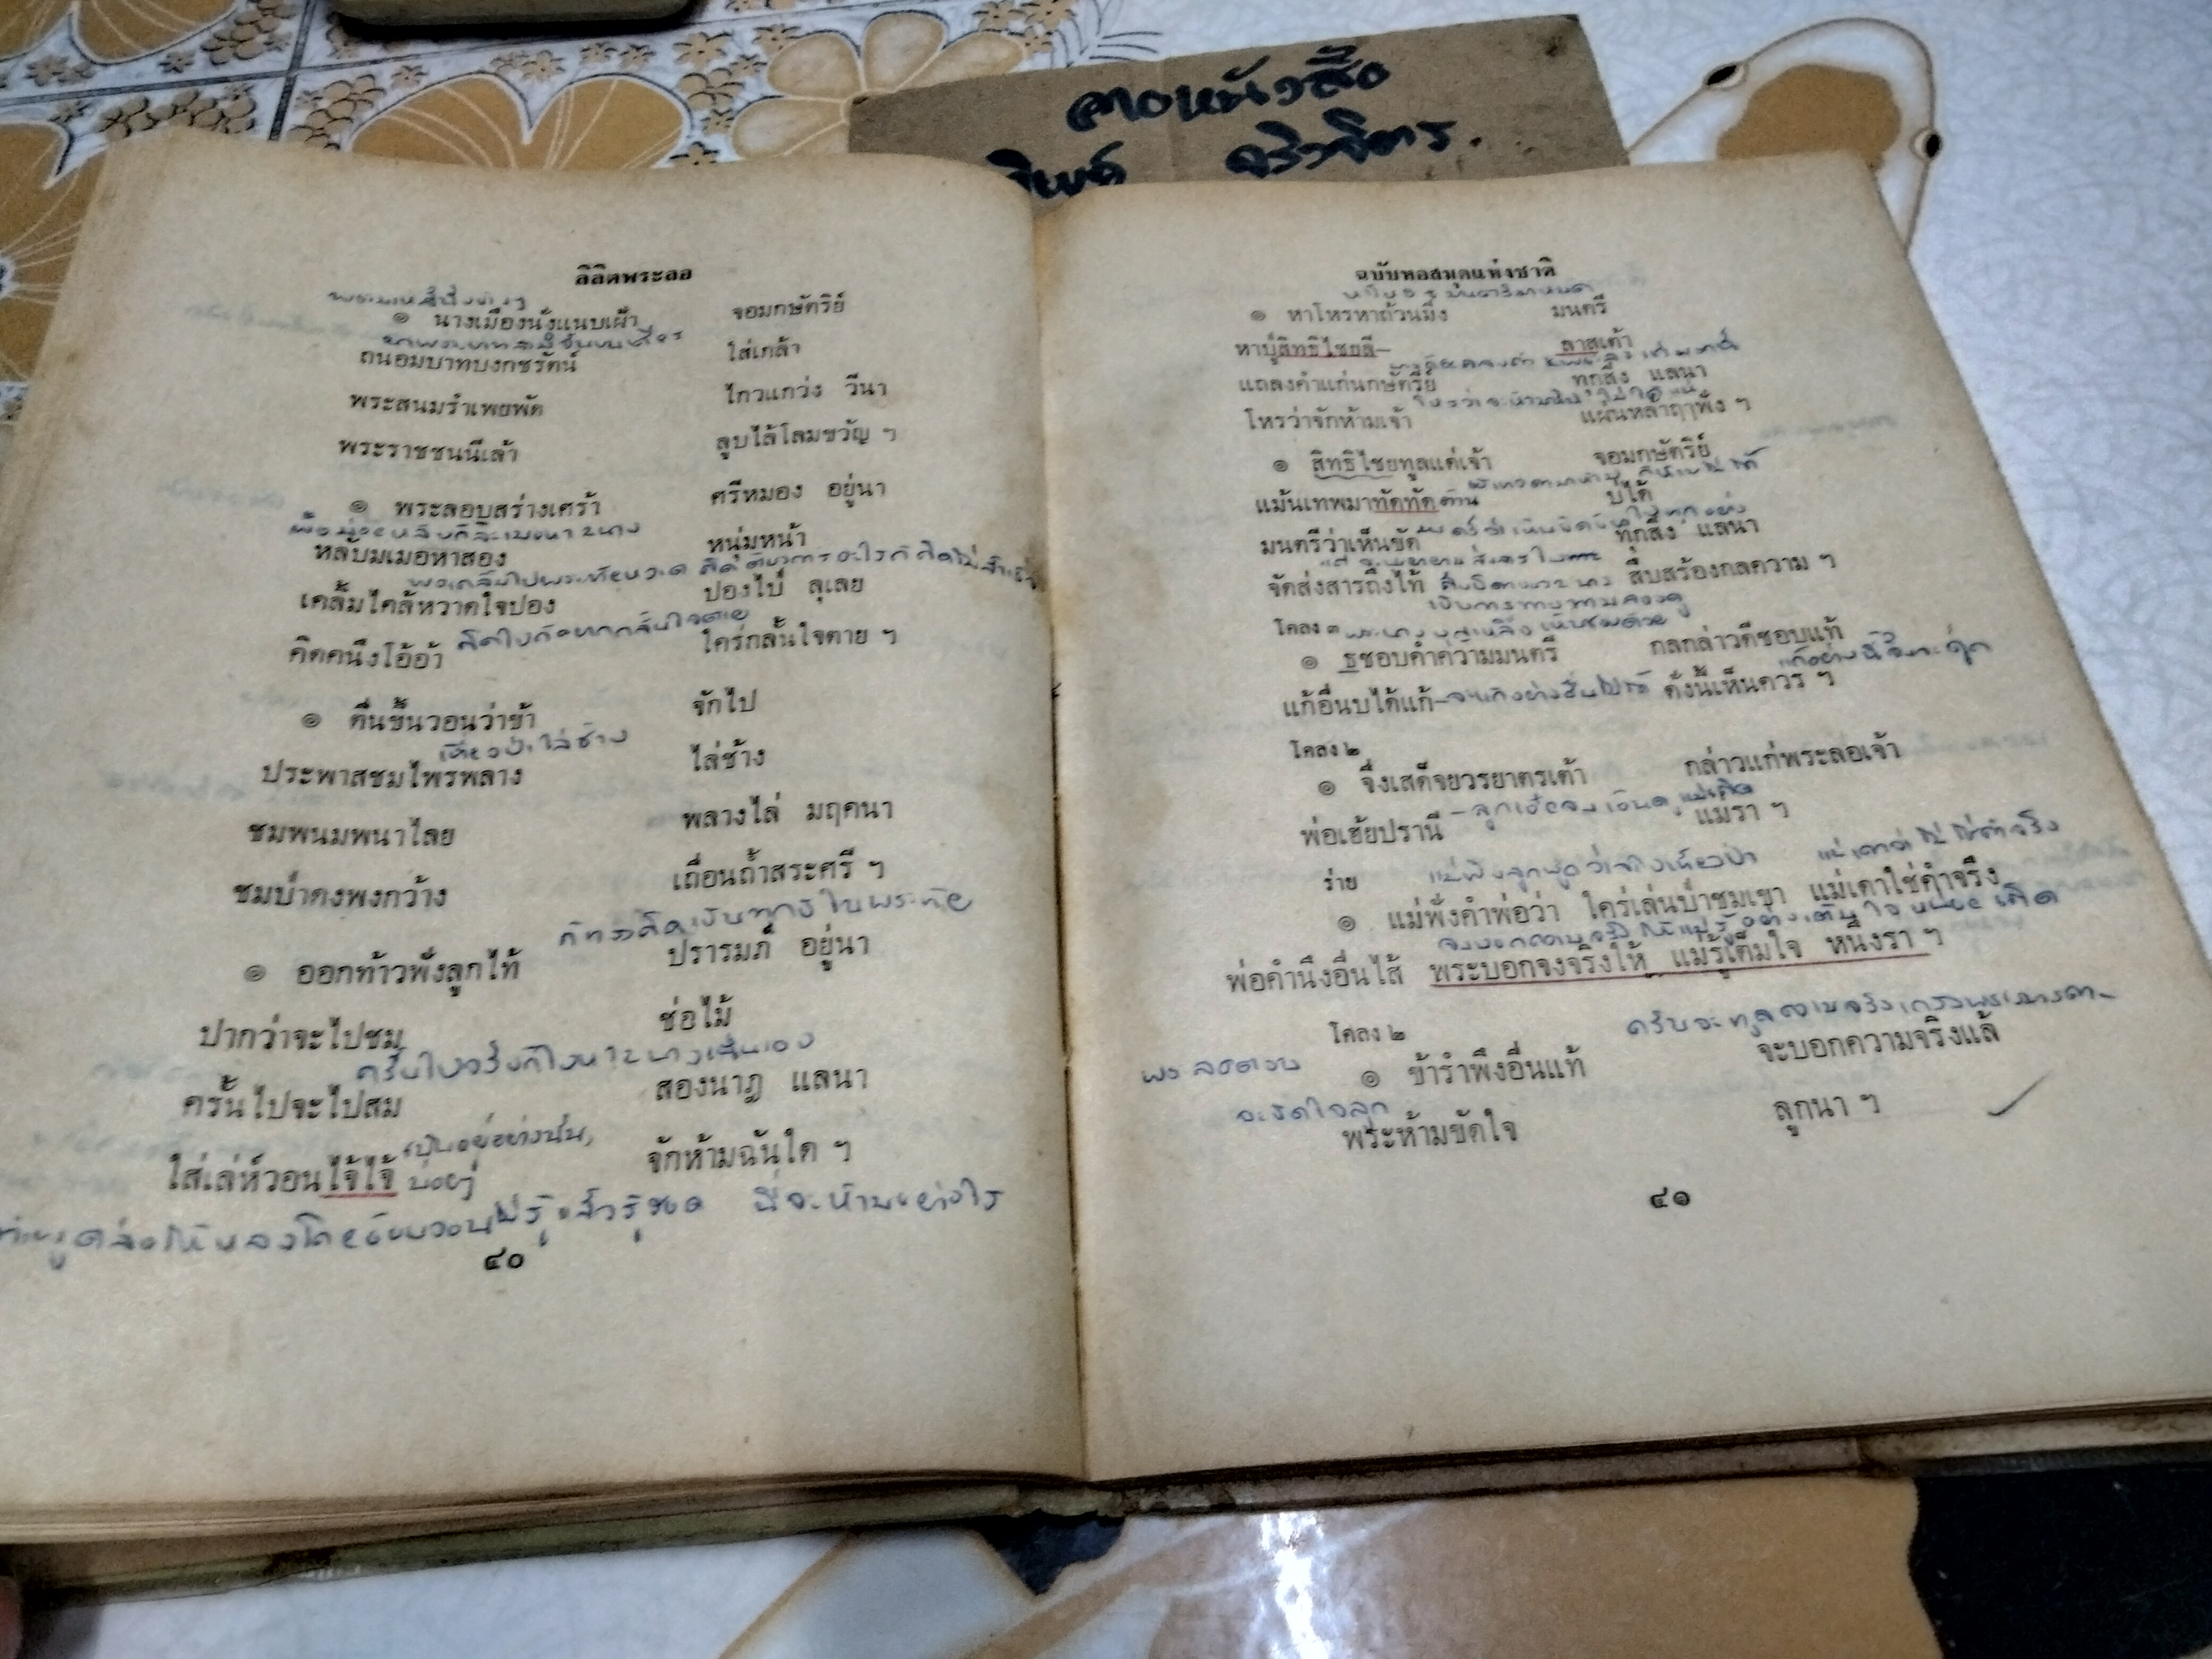 ลายหนังสือ
ลิลิตพระลอ
๏ นางเมืองนั่งแนบเฝ้า จอมกษัตริย์
ถนอมบาทบงกชรัตน์ ใส่เกล้า
พระสนมรำเพยพัด ไกวแกว่ง วีนา
พระราชชนนีเล้า ลูบไล้โลมขวัญ ฯ
๏ พระลอบสร่างเศร้า ศรีหมอง อยู่นา
หลับมเมอหาสอง หนุ่มหน้า
เคลิ้มไคล้หวาดใจปอง ปองไป่ ลุเลย
คิดคนึงโอ้อ้า ใคร่กลั้นใจตาย ฯ
๏ ตื่นขึ้นวอนว่าข้า จักไป
เที่ยวป่าไล่ช้าง
ประพาสชมไพรพลาง ไล่ช้าง
ชมพนมพนาไลย พลางไล่ มฤคนา
ชมป่าดงพงกว้าง เถื่อนถ้ำสระศรี ฯ
๏ ออกท้าวฟังลูกไท้ ปรารมภ์ อยู่นา
ปากว่าจะไปชม ช่อไม้
ครั้นไปจริงก็ไปหา ๒ นางเท่านั้นเอง
ครั้นไปจะไปสม สองนาฎ แลนา
เป็นอยู่อย่างนั้น,
ใส่เล่ห์วอนไจ้ไจ้ บ่อยๆ จักห้ามฉันใด ฯ
นี่จะห้ามอย่างไร
๔๐
ฉบับหอสมุดแห่งชาติ
๏ หาโหรหาถ้วนมิ่ง มนตรี
หาปู่สิทธิไชยลี- ลาสเต้า
แถลงคำแก่นกษัตรีย์ ทุกสิ่ง แลนา
โหรว่าจักห้ามเจ้า แผ่นหล้าฤๅฟัง ฯ
๏ สิทธิไชยทูลแด่เจ้า จอมกษัตริย์
แม้นเทพมาทัดทัด ต้าน บ่ได้
มนตรีว่าเห็นขัด ทุกสิ่ง แลนา
จัดส่งสารถึงไท้ สืบสร้องกลความ ฯ
โคลง ๓
๏ ธชอบคำความมนตรี กลกล่าวดีชอบแท้
แก้อื่นบได้แก้- จะแก้อย่างอื่นไม่ได้ ดังนี้เห็นควร ฯ
โคลง ๒
๏ จึ่งเสด็จยวรยาตรเต้า กล่าวแก่พระลอเจ้า
พ่อเฮ้ยปรานี แม่รา ฯ
ร่าย แม่ฟังลูกพูดว่าจะไปเที่ยวป่า แม่เดาว่าไม่ใช่คำจริง
๏ แม่ฟังคำพ่อว่า ใคร่เล่นป่าชมเขา แม่เดาใช่คำจริง
จงบอกความจริงให้แม่รู้อย่างเต็มใจหน่อยเถิด
พ่อคำนึงอื่นไส้ พระบอกจงจริงให้ แม่รู้เต็มใจ หนึ่งรา ฯ
โคลง ๒
พระลอตอบ
๏ ข้ารำพึงอื่นแท้ จะบอกความจริงแล้
จะขัดใจลูก
พระห้ามขัดใจ ลูกนา ฯ
๔๑